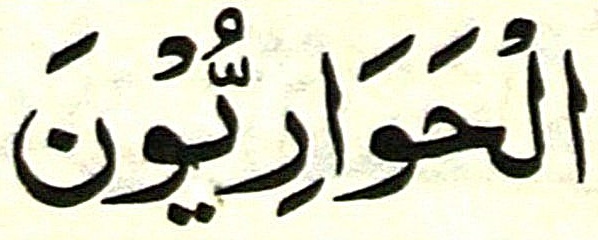 الْحَوَارِيُّوْنَ